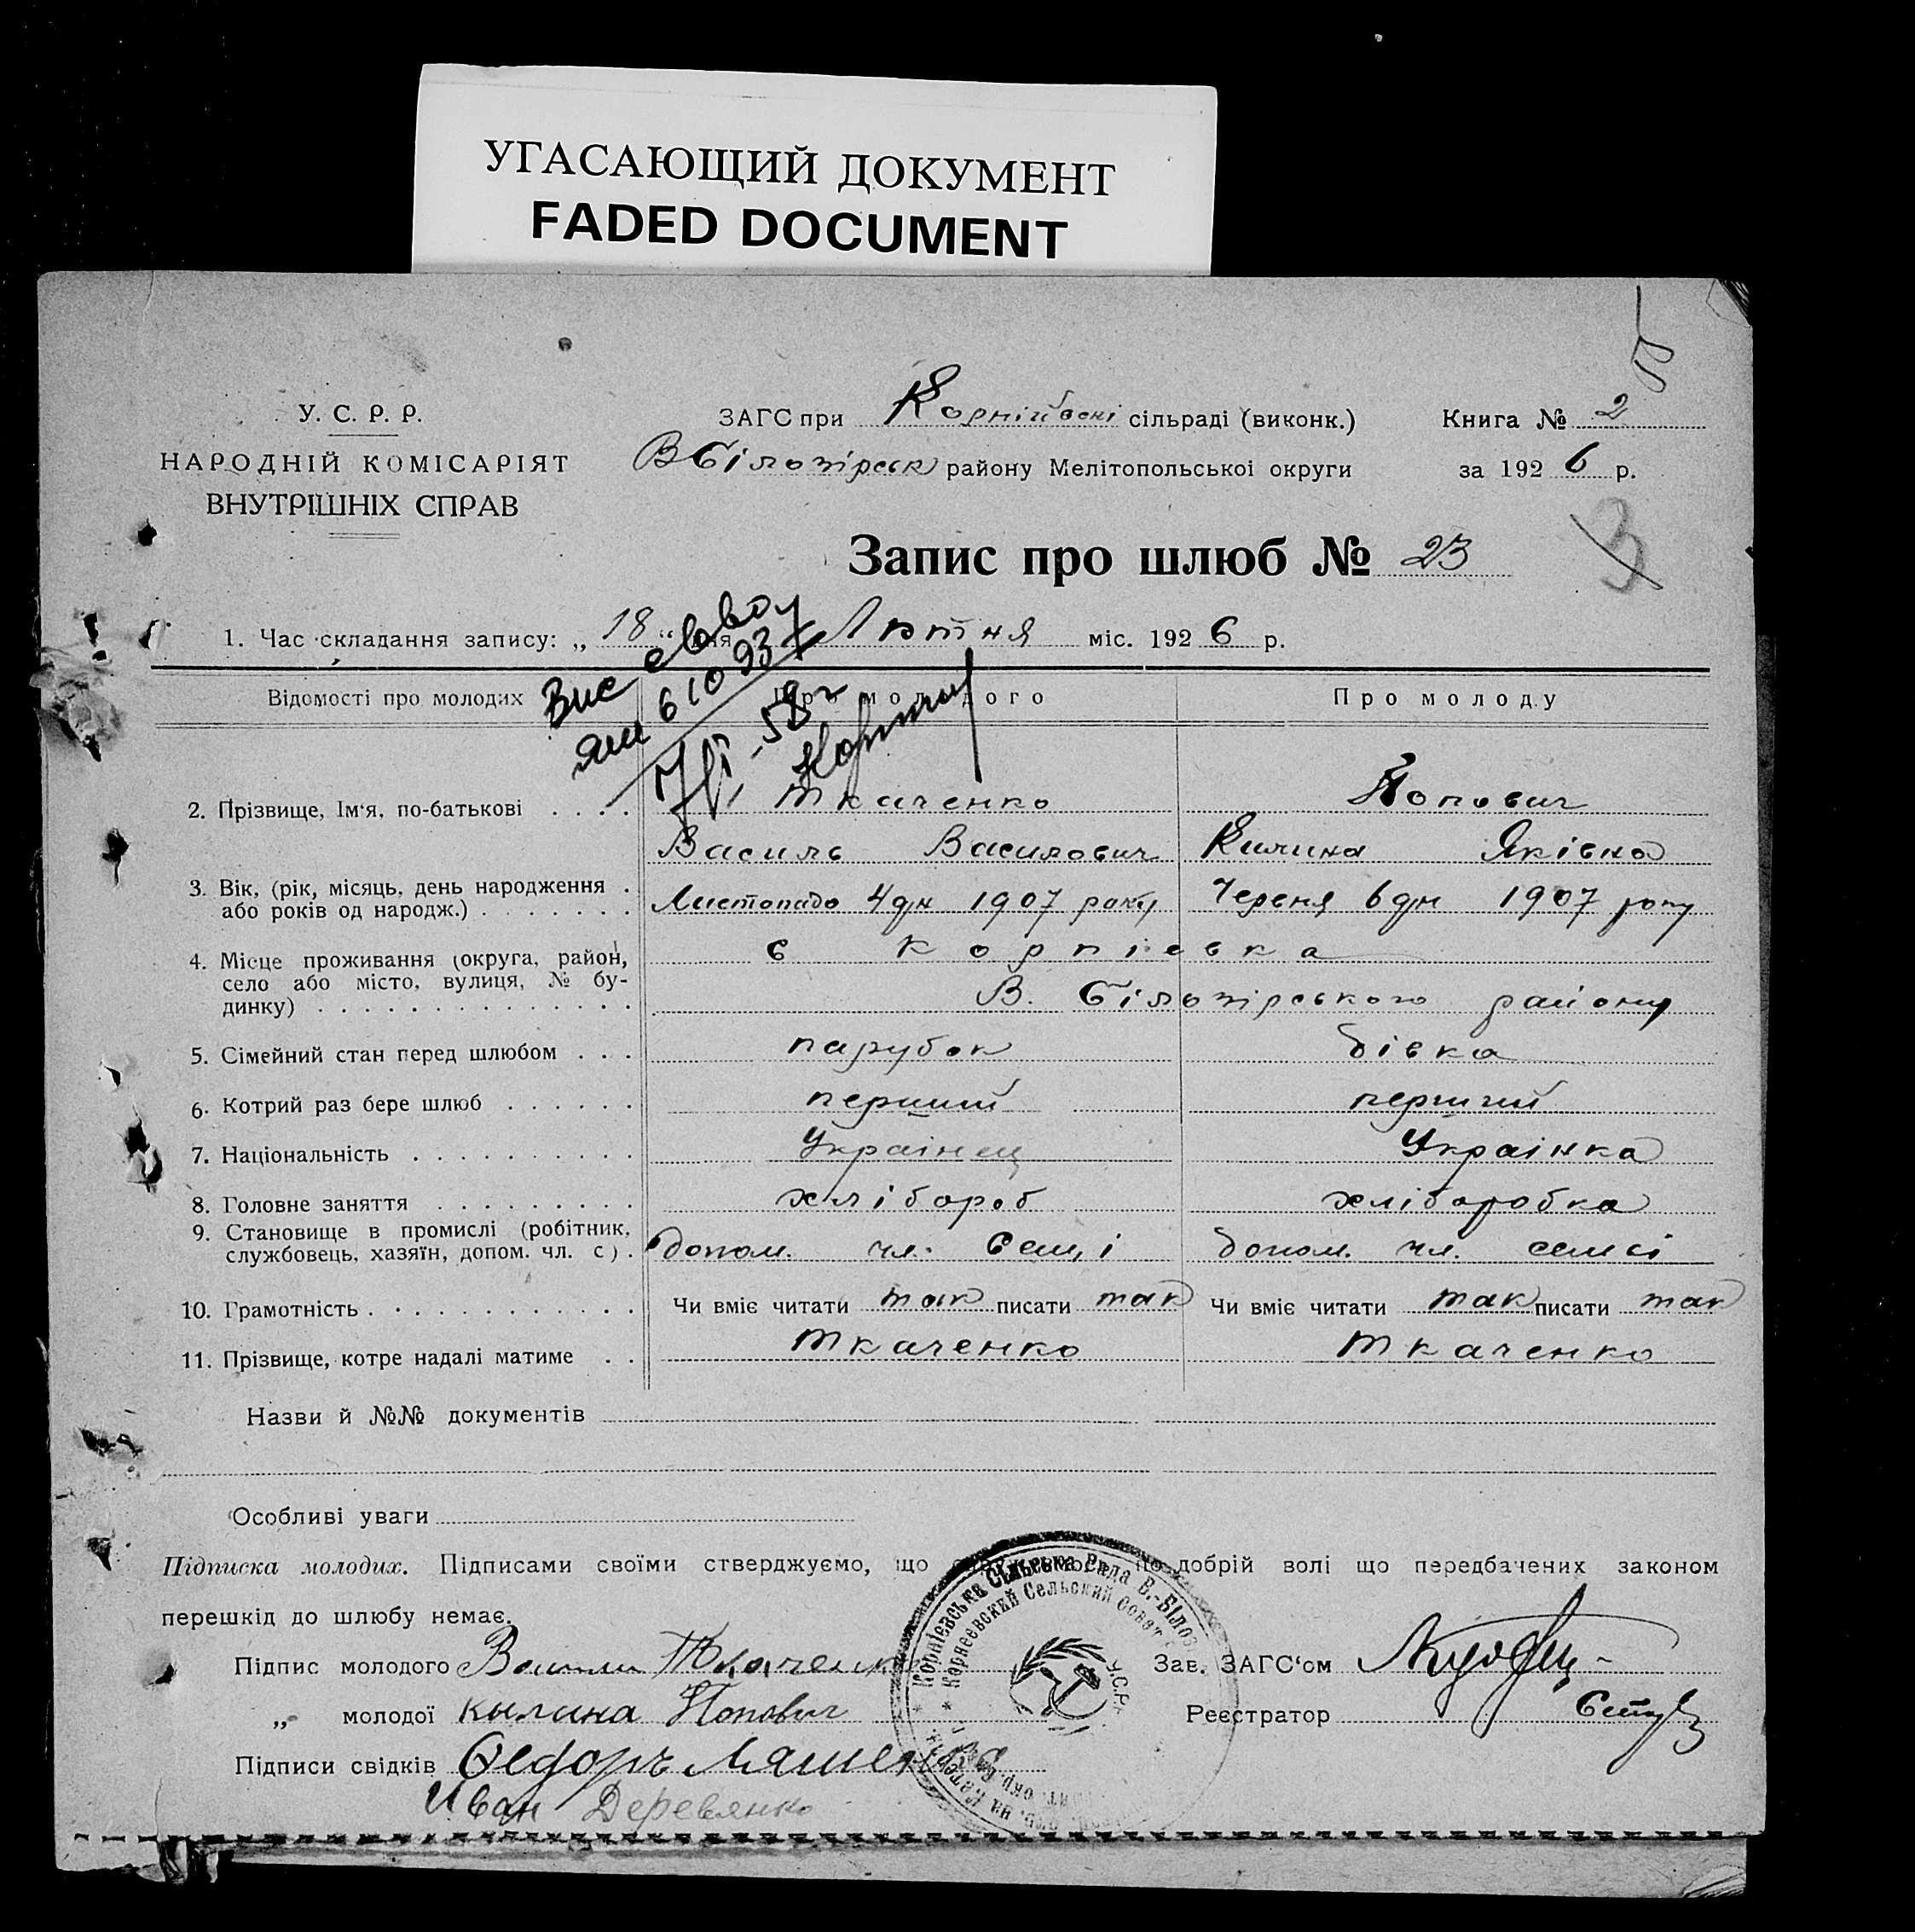 УГАСАЮЩИЙ ДОКУМЕНТ
FADED DOCUMENT
У. С. Р. Р.
НАРОДНІЙ КОМІСАРІЯТ
ВНУТРІШНІХ СПРАВ
ЗАГС при Корніівскі сільраді (виконк.)
В Білозірськ району Мелітопольськоі округи
Книга № 2
за 1926 р.
Запис про шлюб № 23
3
1. Час складання запису: „18“ дня Лютня міс. 1926 р.
610937
58 г
Відомості про молодих Про молодого Про молоду
2. Прізвище, Ім‘я, по-батькові . . . . Ткаченко Попович
Василь Василович Килина Яківна
3. Вік, (рік, місяць, день народження . або років од народж.) . . . . . . . Листопадо 4 дн 1907 року Червня 6 дн 1907 року
4. Місце проживання (округа, район, село або місто, вулиця, № будинку) . . . . . . . . . . . . . . с Корніевка
В. Білозірського району
5. Сімейний стан перед шлюбом . . . парубок дівка
6. Котрий раз бере шлюб . . . . . . перший перший
7. Національність . . . . . . . . . . Украінец Украінка
8. Головне заняття . . . . . . . . . хлібороб хліборобка
9. Становище в промислі (робітник, службовець, хазяїн, допом. чл. с) . допом. чл. семі допом. чл. семєі
10. Грамотність . . . . . . . . . . . . Чи вміє читати так писати так Чи вміє читати так писати так
11. Прізвище, котре надалі матиме . . Ткаченко Ткаченко
Назви й №№ документів
Особливі уваги
Підписка молодих. Підписами своїми стверджуємо, що по добрій волі що передбачених законом
перешкід до шлюбу немає.
Корніевська Сільська Рада В.-Білоз
Корнеевский Сельский Совет
У.С.Р.
Підпис молодого Василь Ткаченко
Зав. ЗАГС‘ом
„ молодої Кылина Попович
Реєстратор
Підписи свідків Федоръ Ляшен
Иван Деревянко